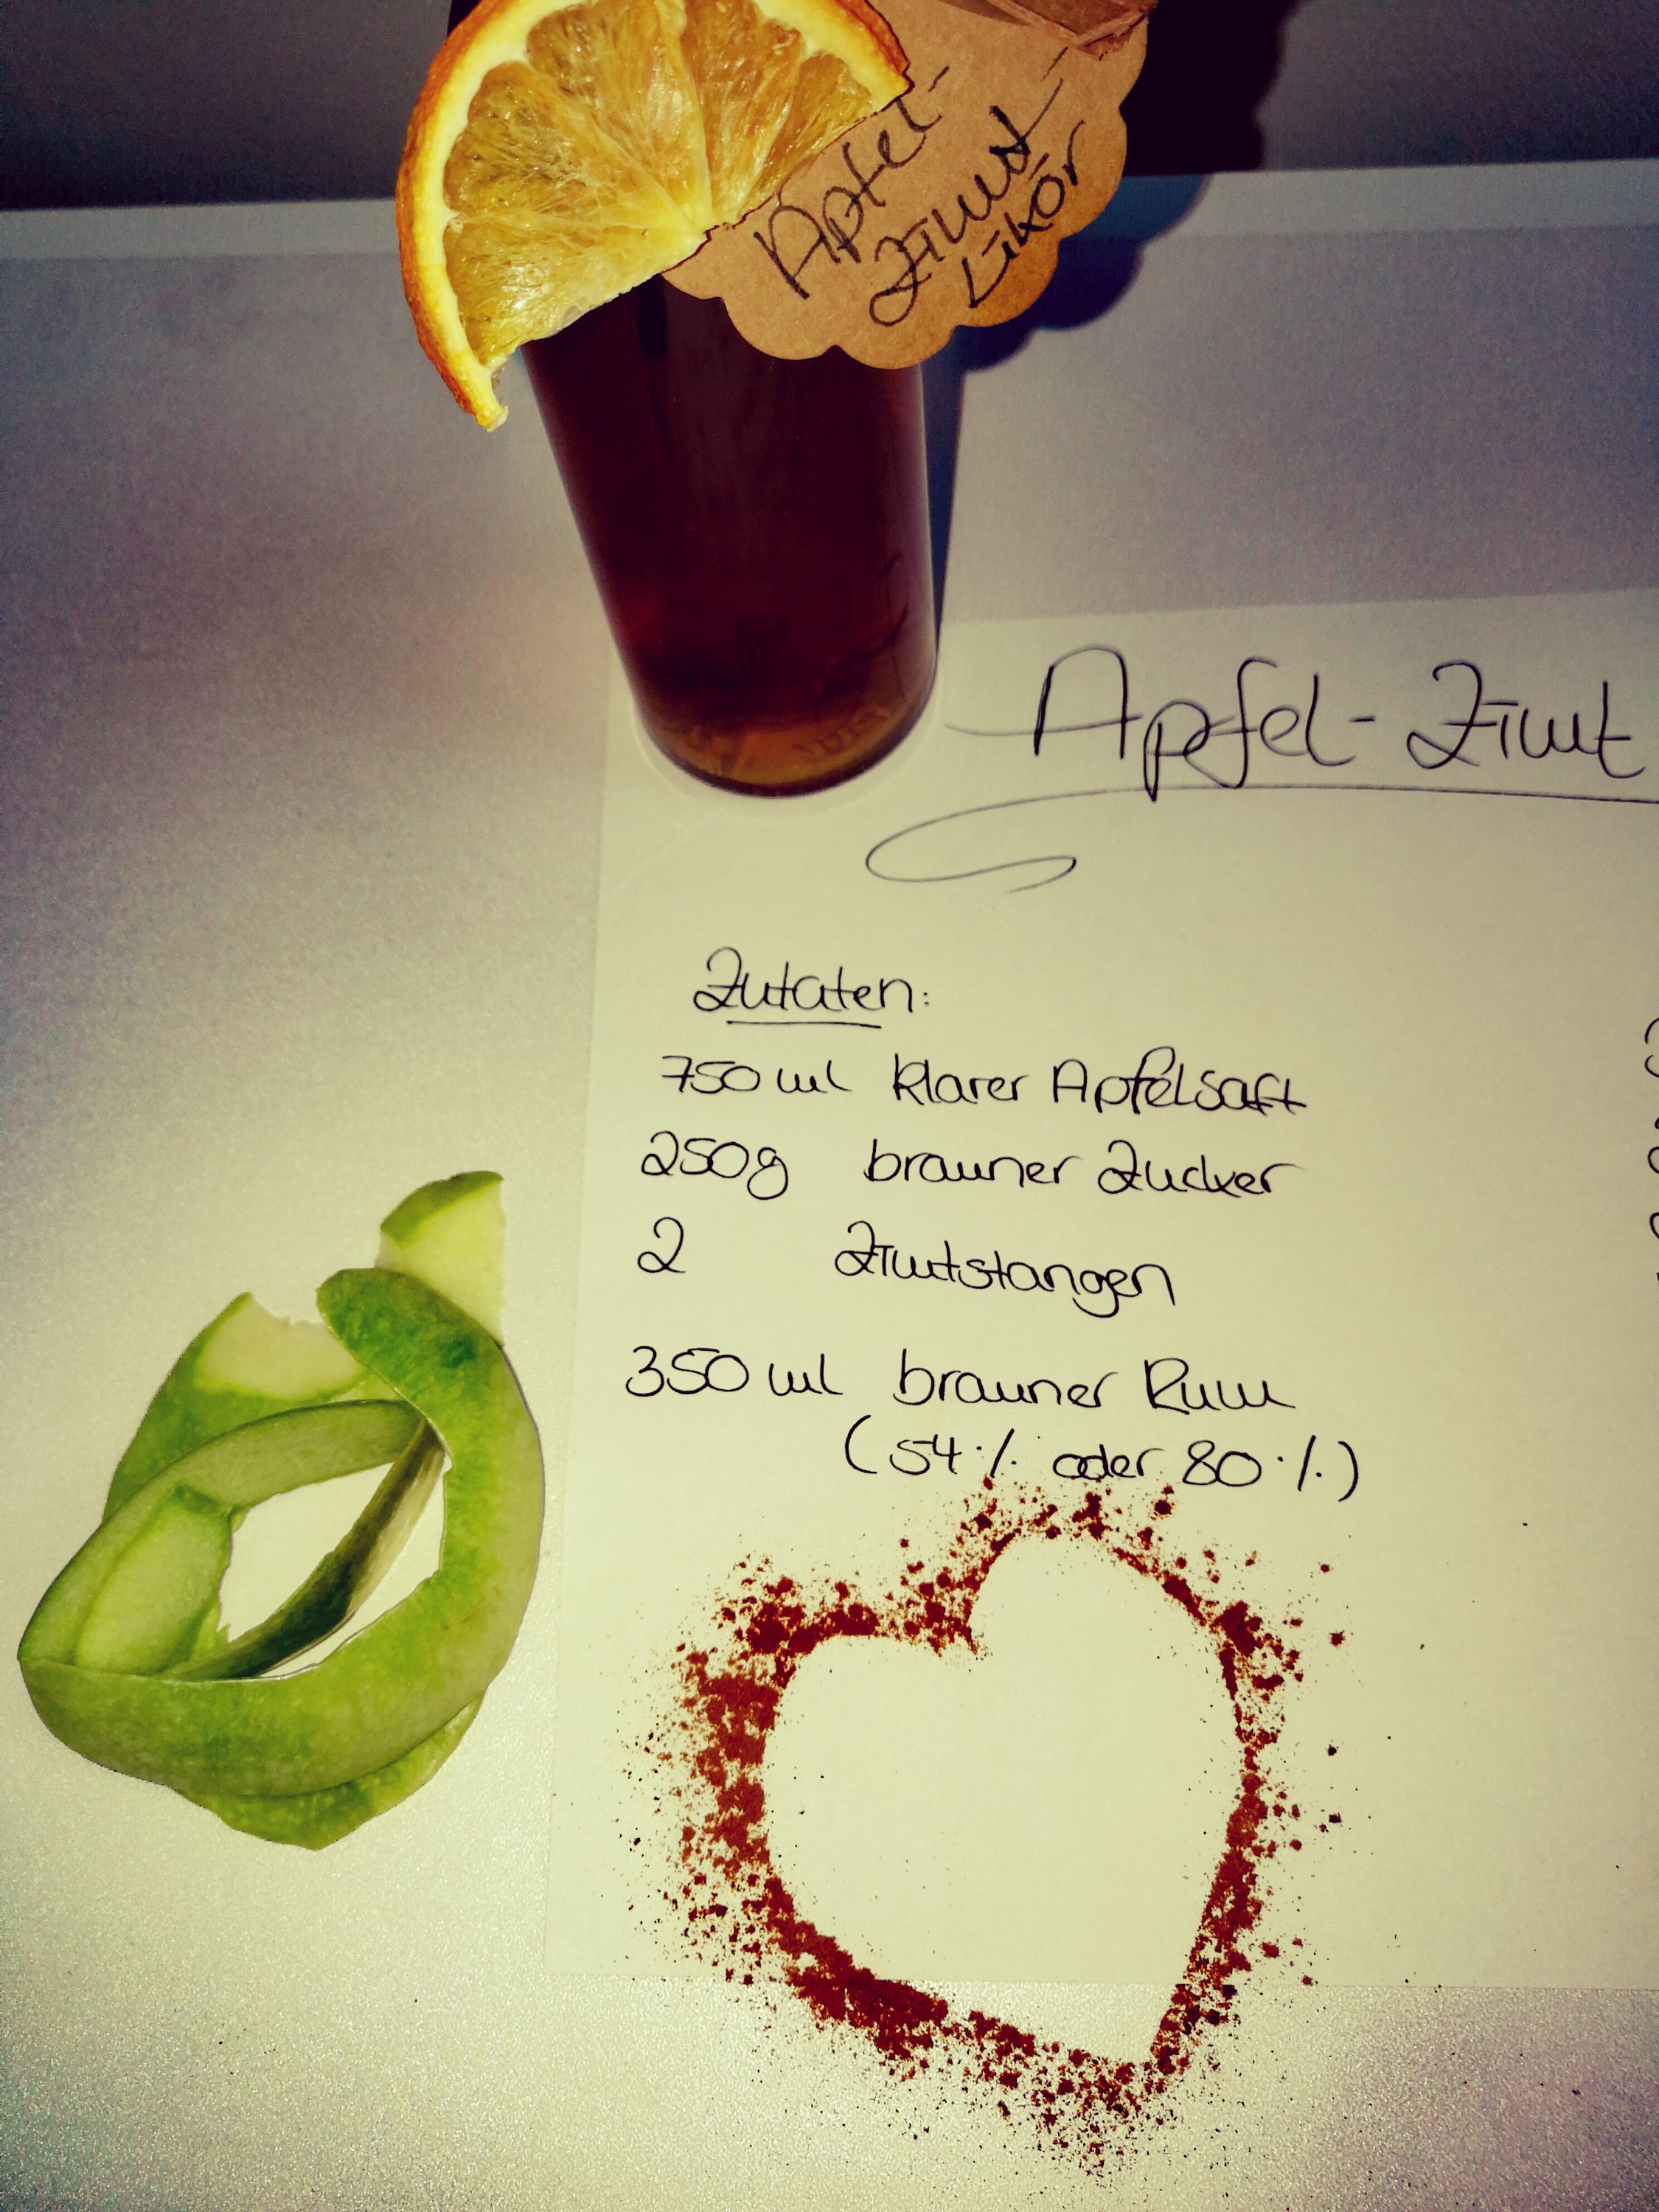 Apfel-
Zimt-
Likör
Apfel-Zimt
Zutaten:
750 ml klarer Apfelsaft
250g brauner Zucker
2 Zimtstangen
350 ml brauner Rum
(54% oder 80%)